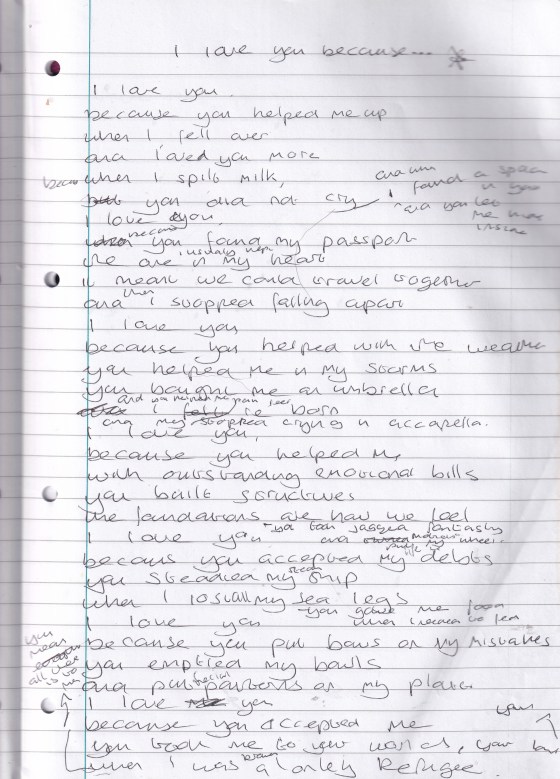 I love you because...
I love you
because you helped me up
when I fell over
and loved you more
when I spilt milk,
you did not cry
I found a space
in you
and you let
me
inside
I love you
you found my passport
the one in my heart
it meant we could travel together
and then I stopped falling apart
I love you
because you helped with the weather
you helped me in my storms
you bought me an umbrella
and you helped me
I fell re born
and my stopped crying in accapella.
I love you,
because you helped me
with outstanding emotional bills
you built structures
the foundations are how we feel
you took jagged fantasies
I love you and
because you accepted my debts
you steadied my ship
when I lost all my sea legs
you gave me food
I love you when I needed to
because you put bows on my mistakes
you emptied my
and put on my plate
I love you
because you accepted me
you mean
all
you took me to your world, your
when I was a lonely Refugee